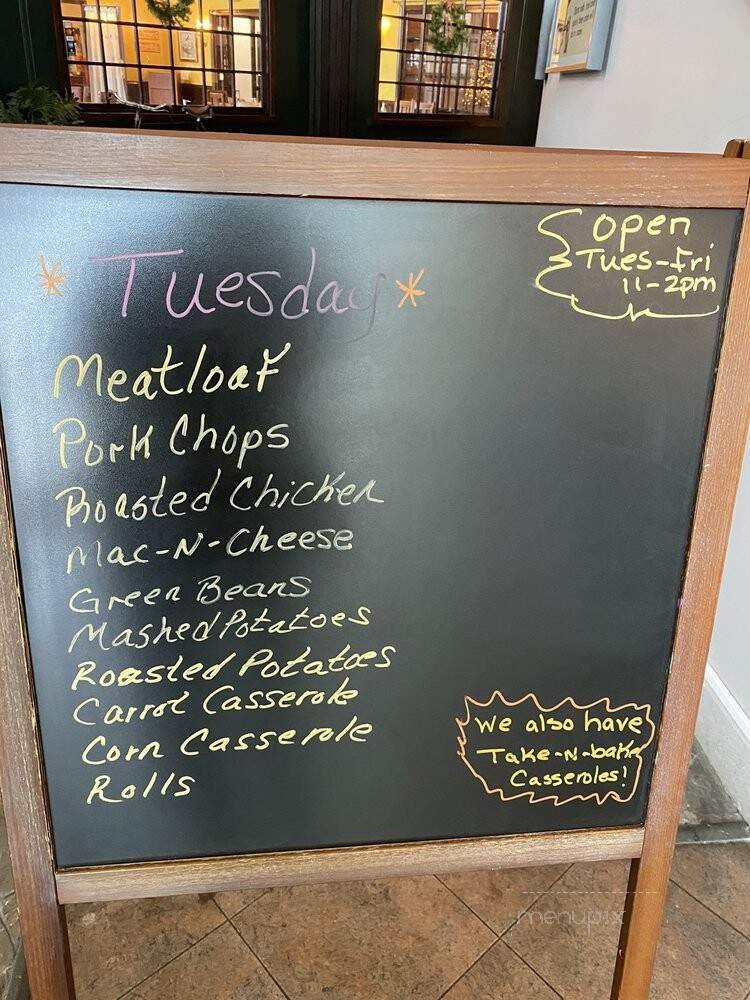 open
Tues-Fri
11-2pm
* Tuesday *
Meatloaf
Pork Chops
Roasted Chicken
Mac-N-Cheese
Green Beans
Mashed Potatoes
Roasted Potatoes
Carrot Casserole
Corn Casserole
Rolls
We also have
Take-N-bake
Casseroles!
menupix